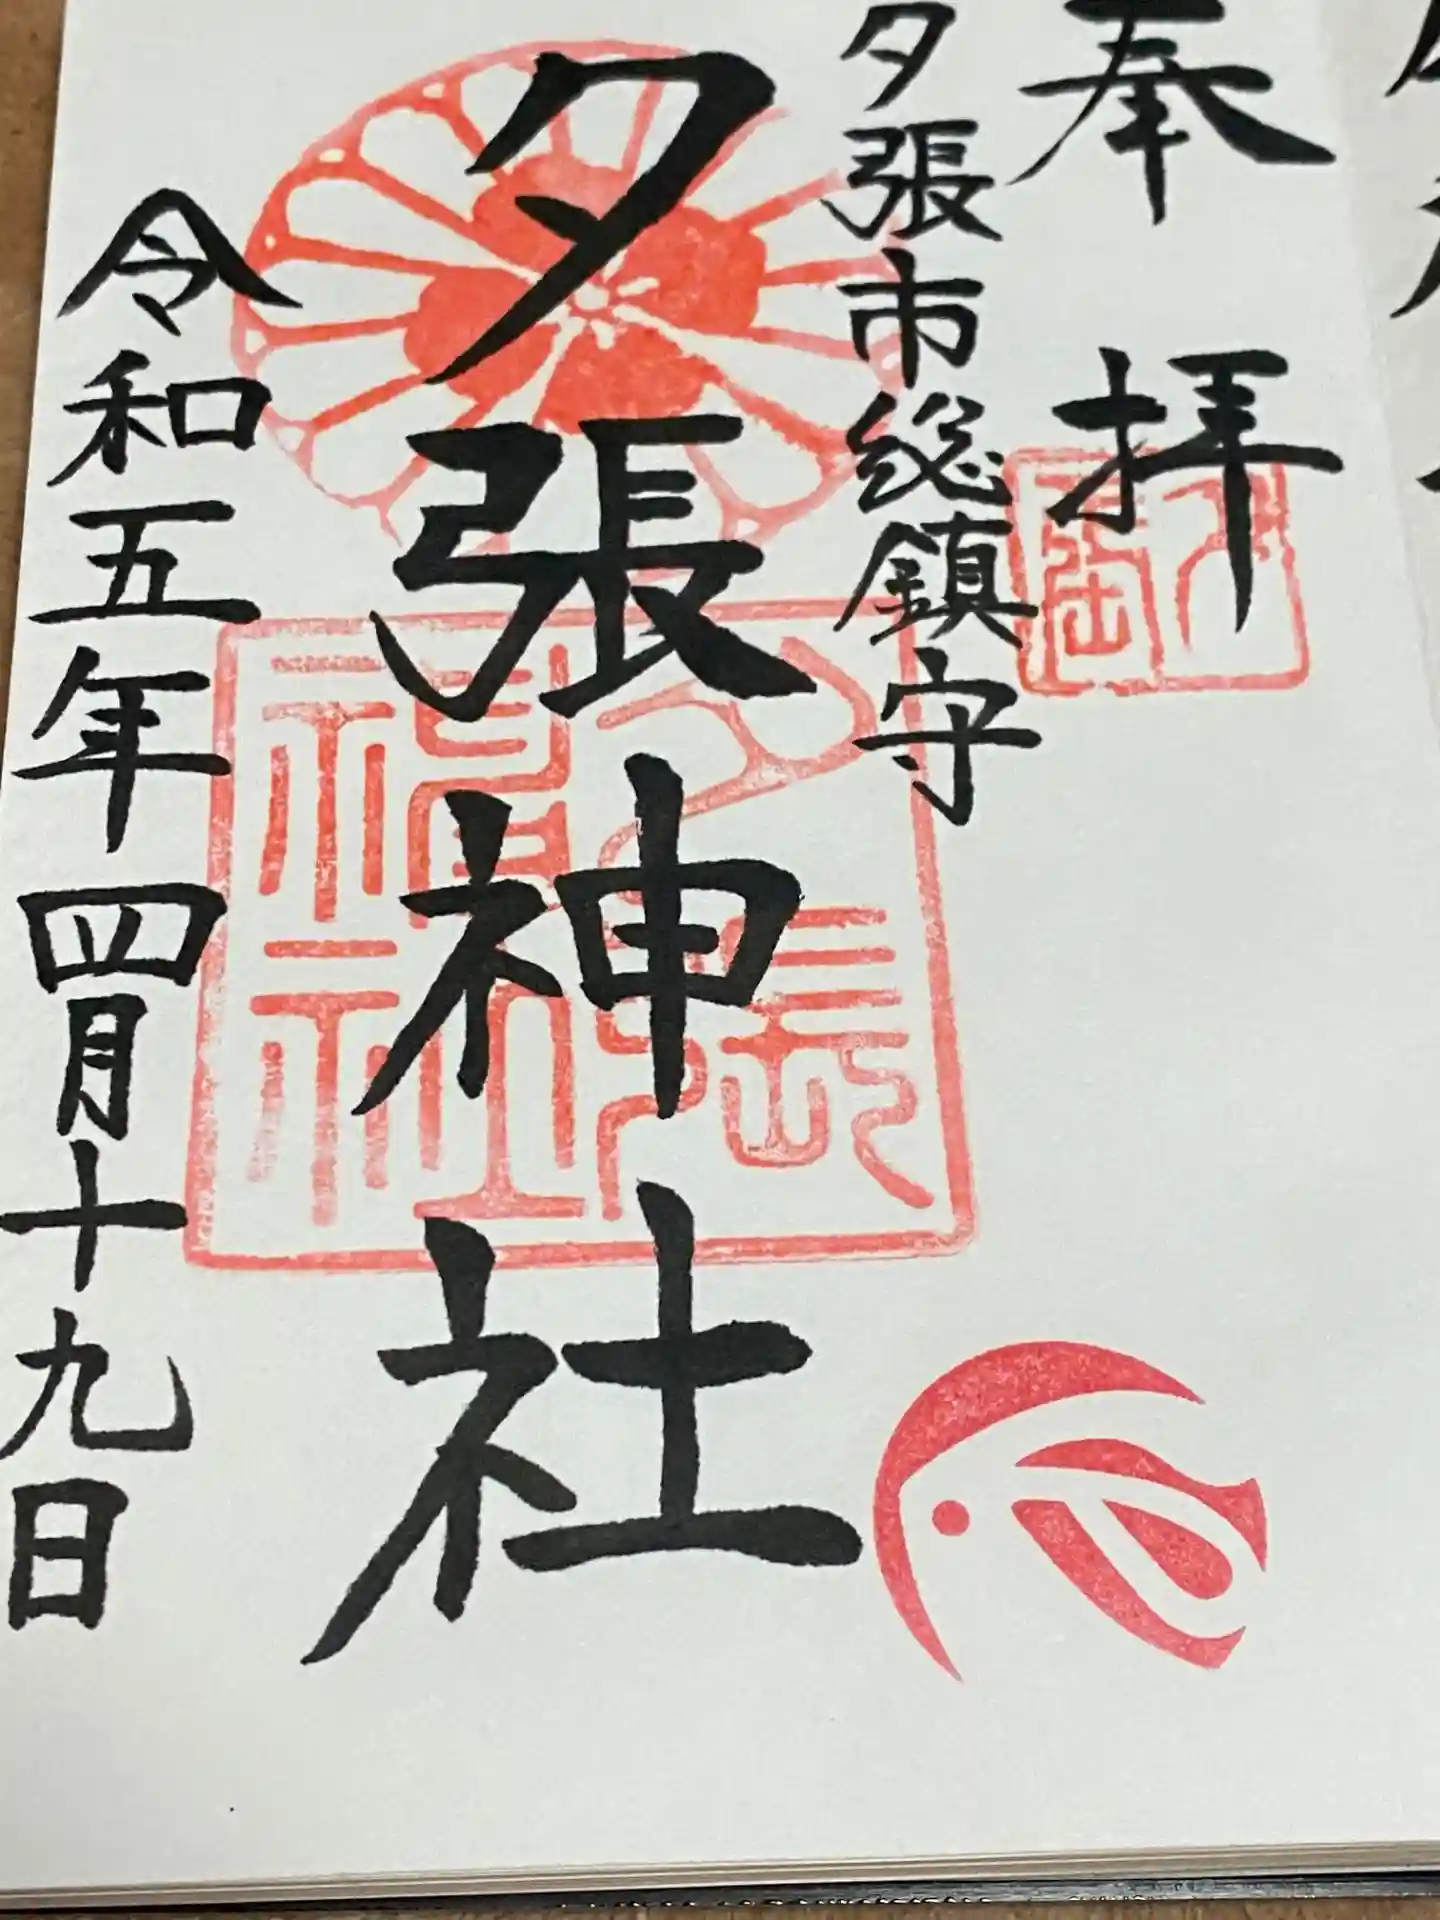 奉拝
夕張市総鎮守
夕張神社
令和五年四月十九日
夕張
神社